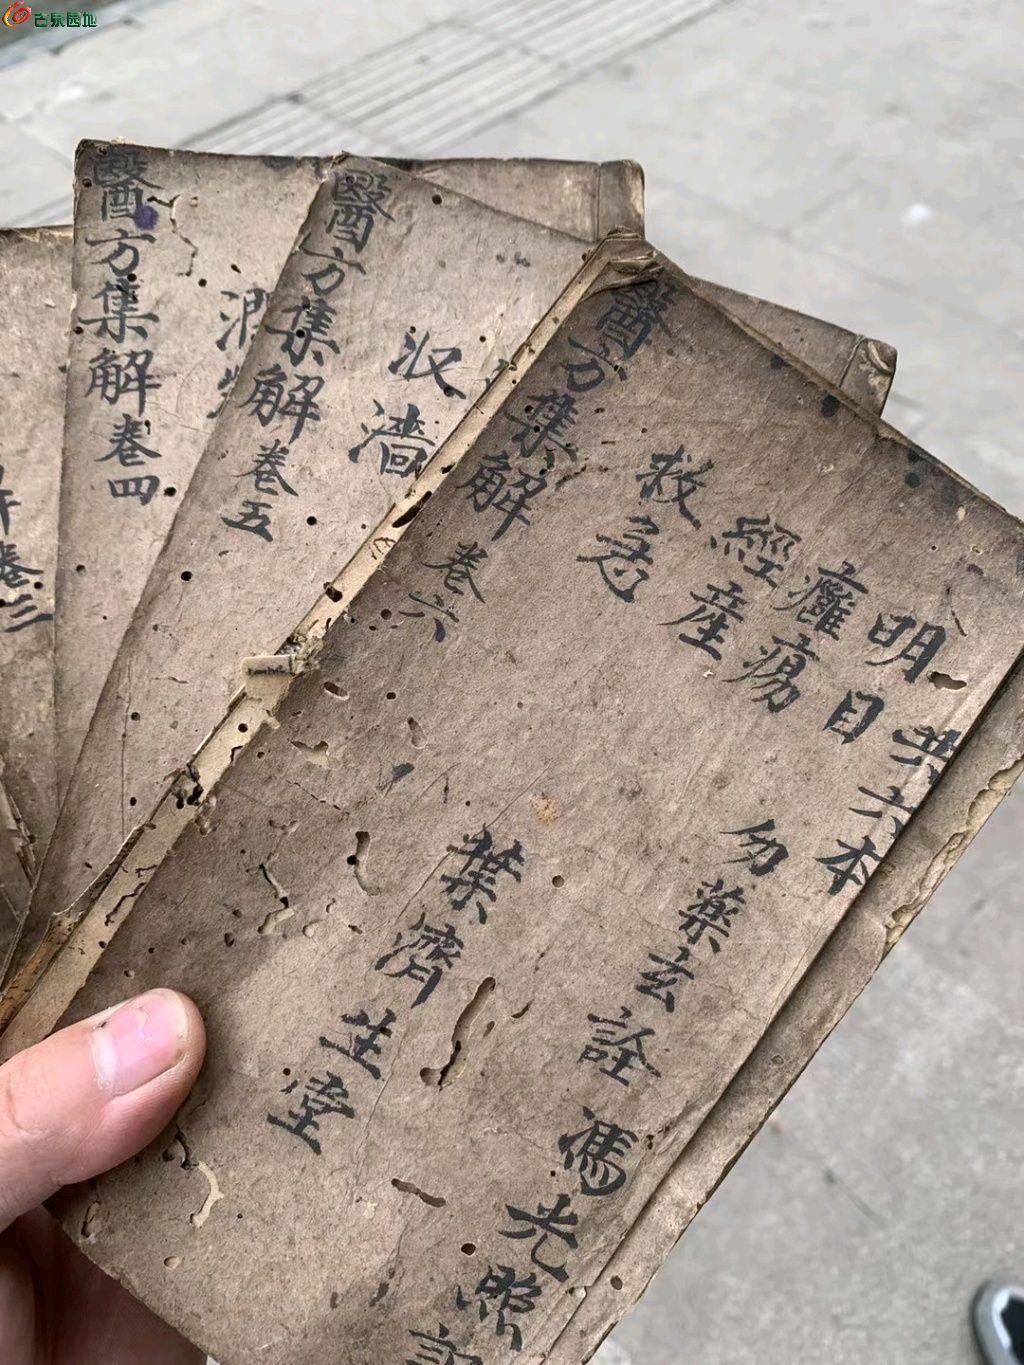 古泉园地
共六本
明目
癰瘍
經產
救急
勿藥玄詮
馮光照記
葉濟生堂
醫方集解卷六
收濇
醫方集解卷五
潤
醫方集解卷四
卷三